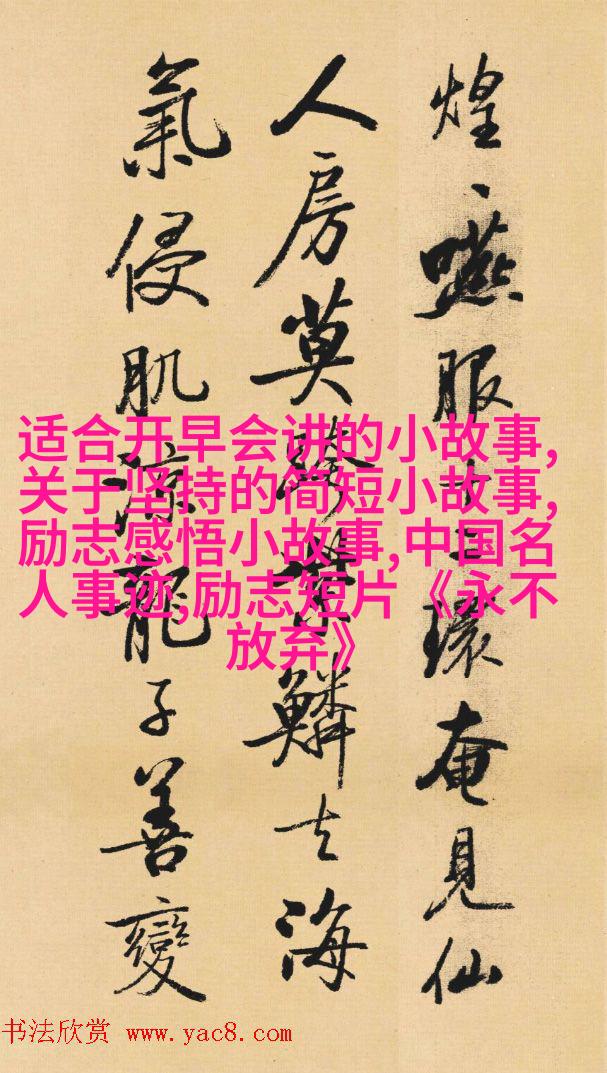 煌、嚥服環奄見仙
人房莫鱗去海
氣侵肌涼龍子善變
适合开早会讲的小故事,
关于坚持的简短小故事,
励志感悟小故事,中国名
人事迹,励志短片《永不
放弃》
书法欣赏 www.yac8.com